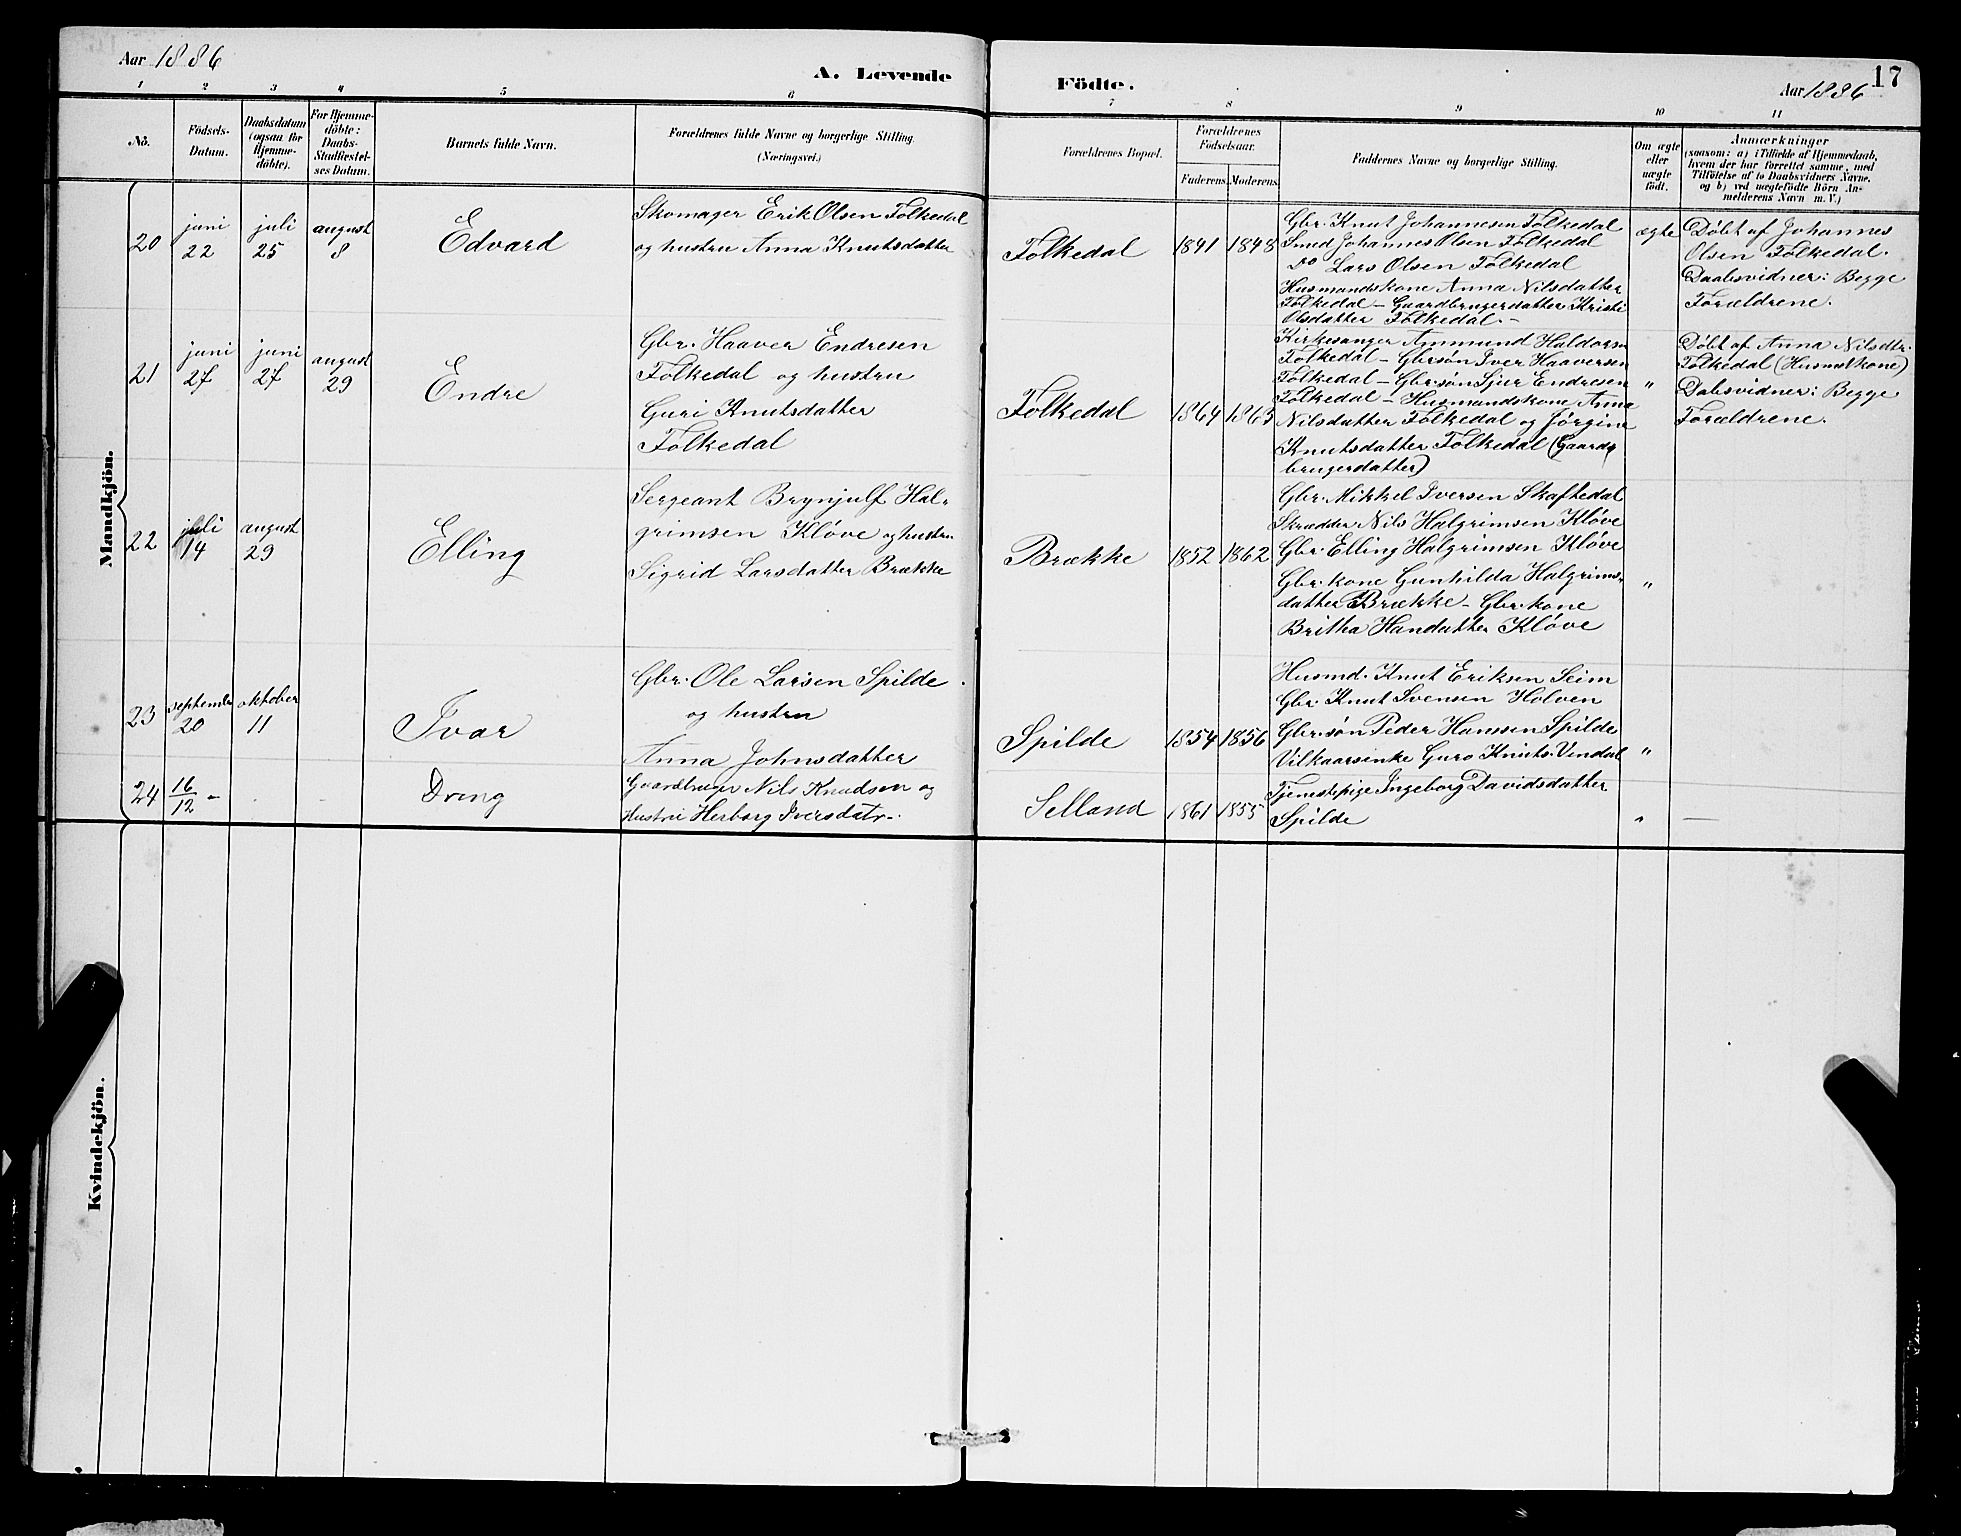 Aar 1886
A. Levende
Födte.
Aar 1886
17
1 2 3 4 5 6 7 8 9 10 11
No.
Födsels-
Datum.
Daabsdatum
(ogsaa for
Hjemme-
döbte).
For Hjemme-
döbte:
Daabs-
Stadfæstel-
ses Datum.
Barnets fulde Navn.
Forældrenes fulde Navne og borgerlige Stilling.
(Næringsvei.)
Forældrenes Bopæl.
Forældrenes
Födselsaar.
Faderens. Moderens.
Faddernes Navne og borgerlige Stilling.
Om ægte
eller
uægte
födt.
Anmærkninger
(saasom: a) i Tilfælde af Hjemmedaab,
hvem der har forrettet samme, med
Tilföielse af to Daabsvidners Navne,
og b) ved uægtefödte Börn An-
melderens Navn m. V.)
Mandkjön.
20
juni
22
juli
25
august
8
Edvard
Skomager Erik Olsen Folkedal
og hustru Anna Knutsdatter
Folkedal
1841 1848
Gbr. Knut Johannesen Folkedal
Smed Johannes Olsen Folkedal
Do Lars Olsen Folkedal
Husmandskone Anna Nilsdatter
Folkedal – Gaardbrugerdatter Kristi
Olsdatter Folkedal. –
ægte
Døbt af Johannes
Olsen Folkedal.
Daabsvidner: Begge
Forældrene.
21
juni
27
juni
27
august
29
Endre
Gbr. Haaver Endresen
Folkedal og hustru
Guri Knutsdatter
Folkedal
Folkedal
1864 1863
Kirkesanger Ammund Haldorsen
Folkedal – Gbrsøn Iver Haaversen
Folkedal – Gbr.søn Sjur Endresen
Folkedal – Husmandskone Anna
Nilsdatter Folkedal og Jørgine
Knutsdatter Folkedal (Gaard-
brugerdatter)
"
Døbt af Anna Nilsdtr.
Folkedal (Husmdkone)
Dabsvidner: Begge
Forældrene.
22
juli
14
august
29
Elling
Sergeant Brynjulf Hal-
grimsen Kløve og hustru
Sigrid Larsdatter Brække
Brække
1852 1862
Gbr. Mikkel Iversen Skaftedal
Skrædder Nils Halgrimsen Kløve
Gbr. Elling Halgrimsen Kløve
Gbr. kone Gunhilda Halgrims-
datter Brække – Gbr. kone
Britha Handatter Kløve
"
23
september
20
oktober
11
Ivar
Gbr. Ole Larsen Spilde
og hustru
Anna Johnsdatter
Spilde
1854 1856
Husmd. Knut Eriksen Seim
Gbr. Knut Svensen Holven
Gbr. søn Peder Hansen Spilde
Vilkaarsenke Guro Knuts. Vindal
"
24
16/12 –
Dreng
Gaardbruger Nils Knudsen og
Hustru Herborg Iversdatr.
Selland
1861 1855
Tjenestepige Ingeborg Davidsdatter
Spilde
"
Kvindekjön.